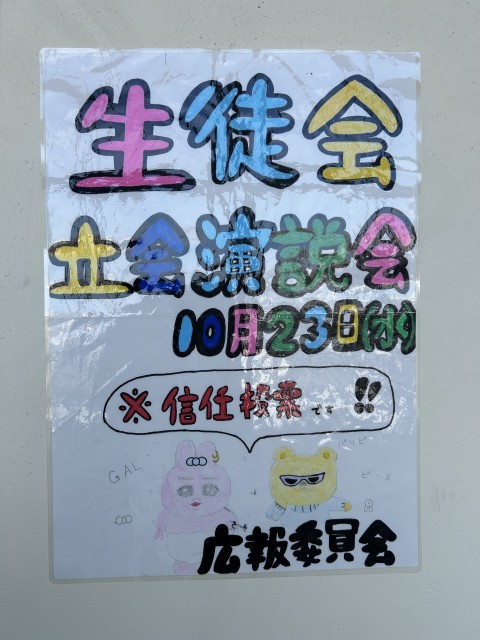 生徒会
立会演説会
10月23日(水)
※信任投票です!!
GAL
パリピ
ピース
広報委員会